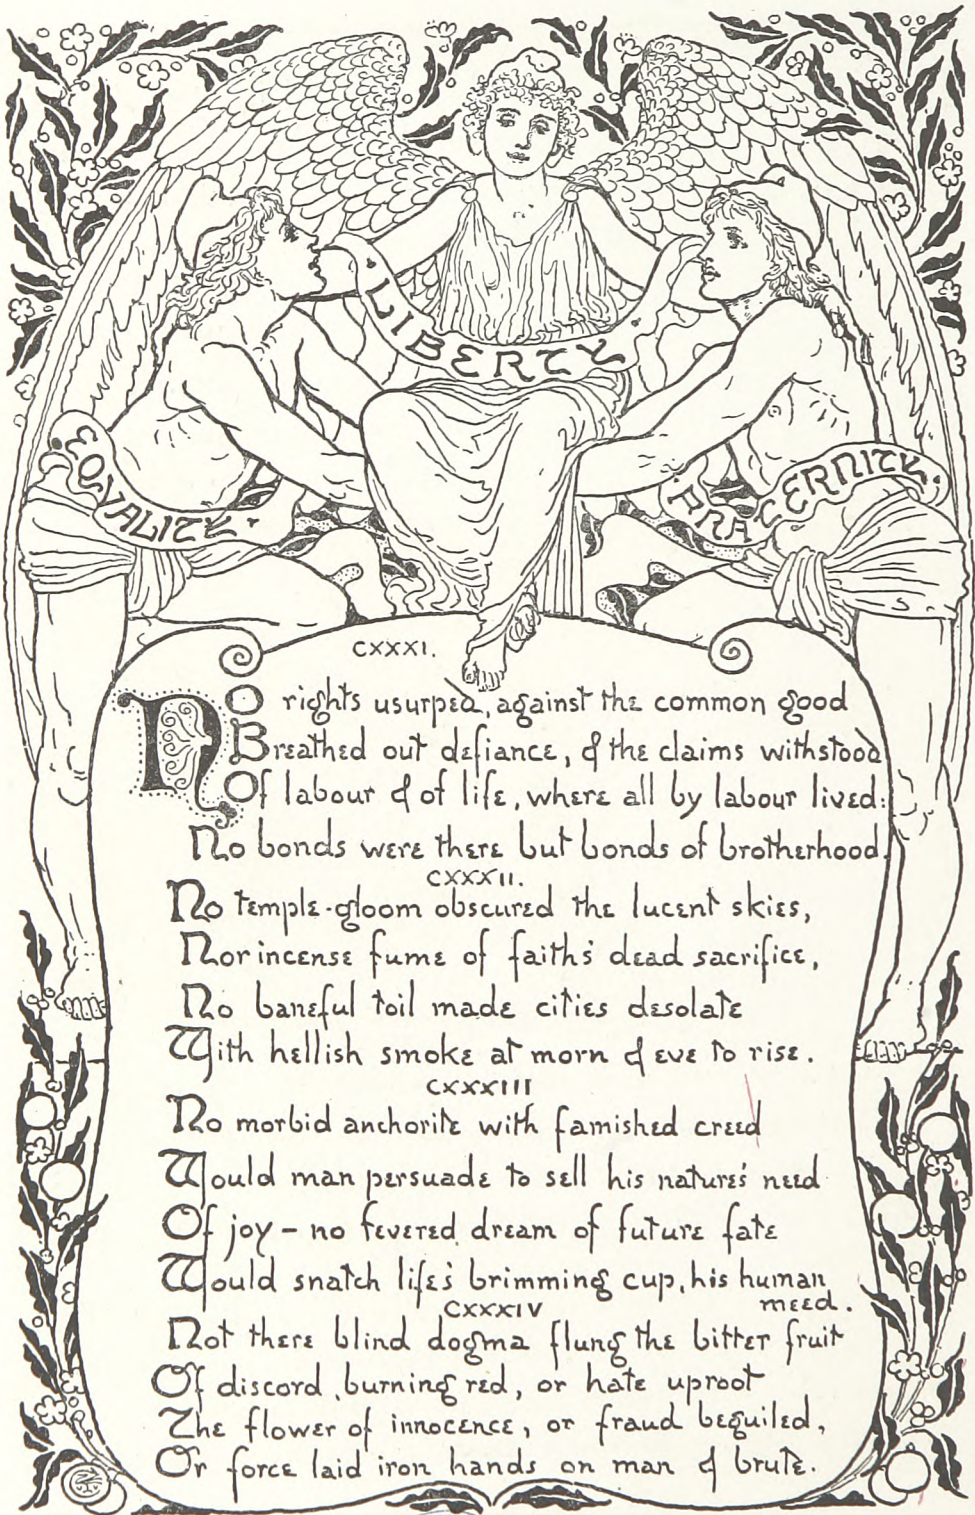 LIBERTY
EQVALITY
FRATERNITY
CXXXI.
No rights usurped, against the common good
Breathed out defiance, & the claims withstood
Of labour & of life, where all by labour lived:
No bonds were there but bonds of brotherhood.
CXXXII.
No temple-gloom obscured the lucent skies,
Nor incense fume of faith's dead sacrifice,
No baneful toil made cities desolate
With hellish smoke at morn & eve to rise.
CXXXIII
No morbid anchorite with famished creed
Would man persuade to sell his nature's need
Of joy – no fevered dream of future fate
Would snatch life's brimming cup, his human
meed.
CXXXIV
Not there blind dogma flung the bitter fruit
Of discord, burning red, or hate uproot
The flower of innocence, or fraud beguiled,
Or force laid iron hands on man & brute.